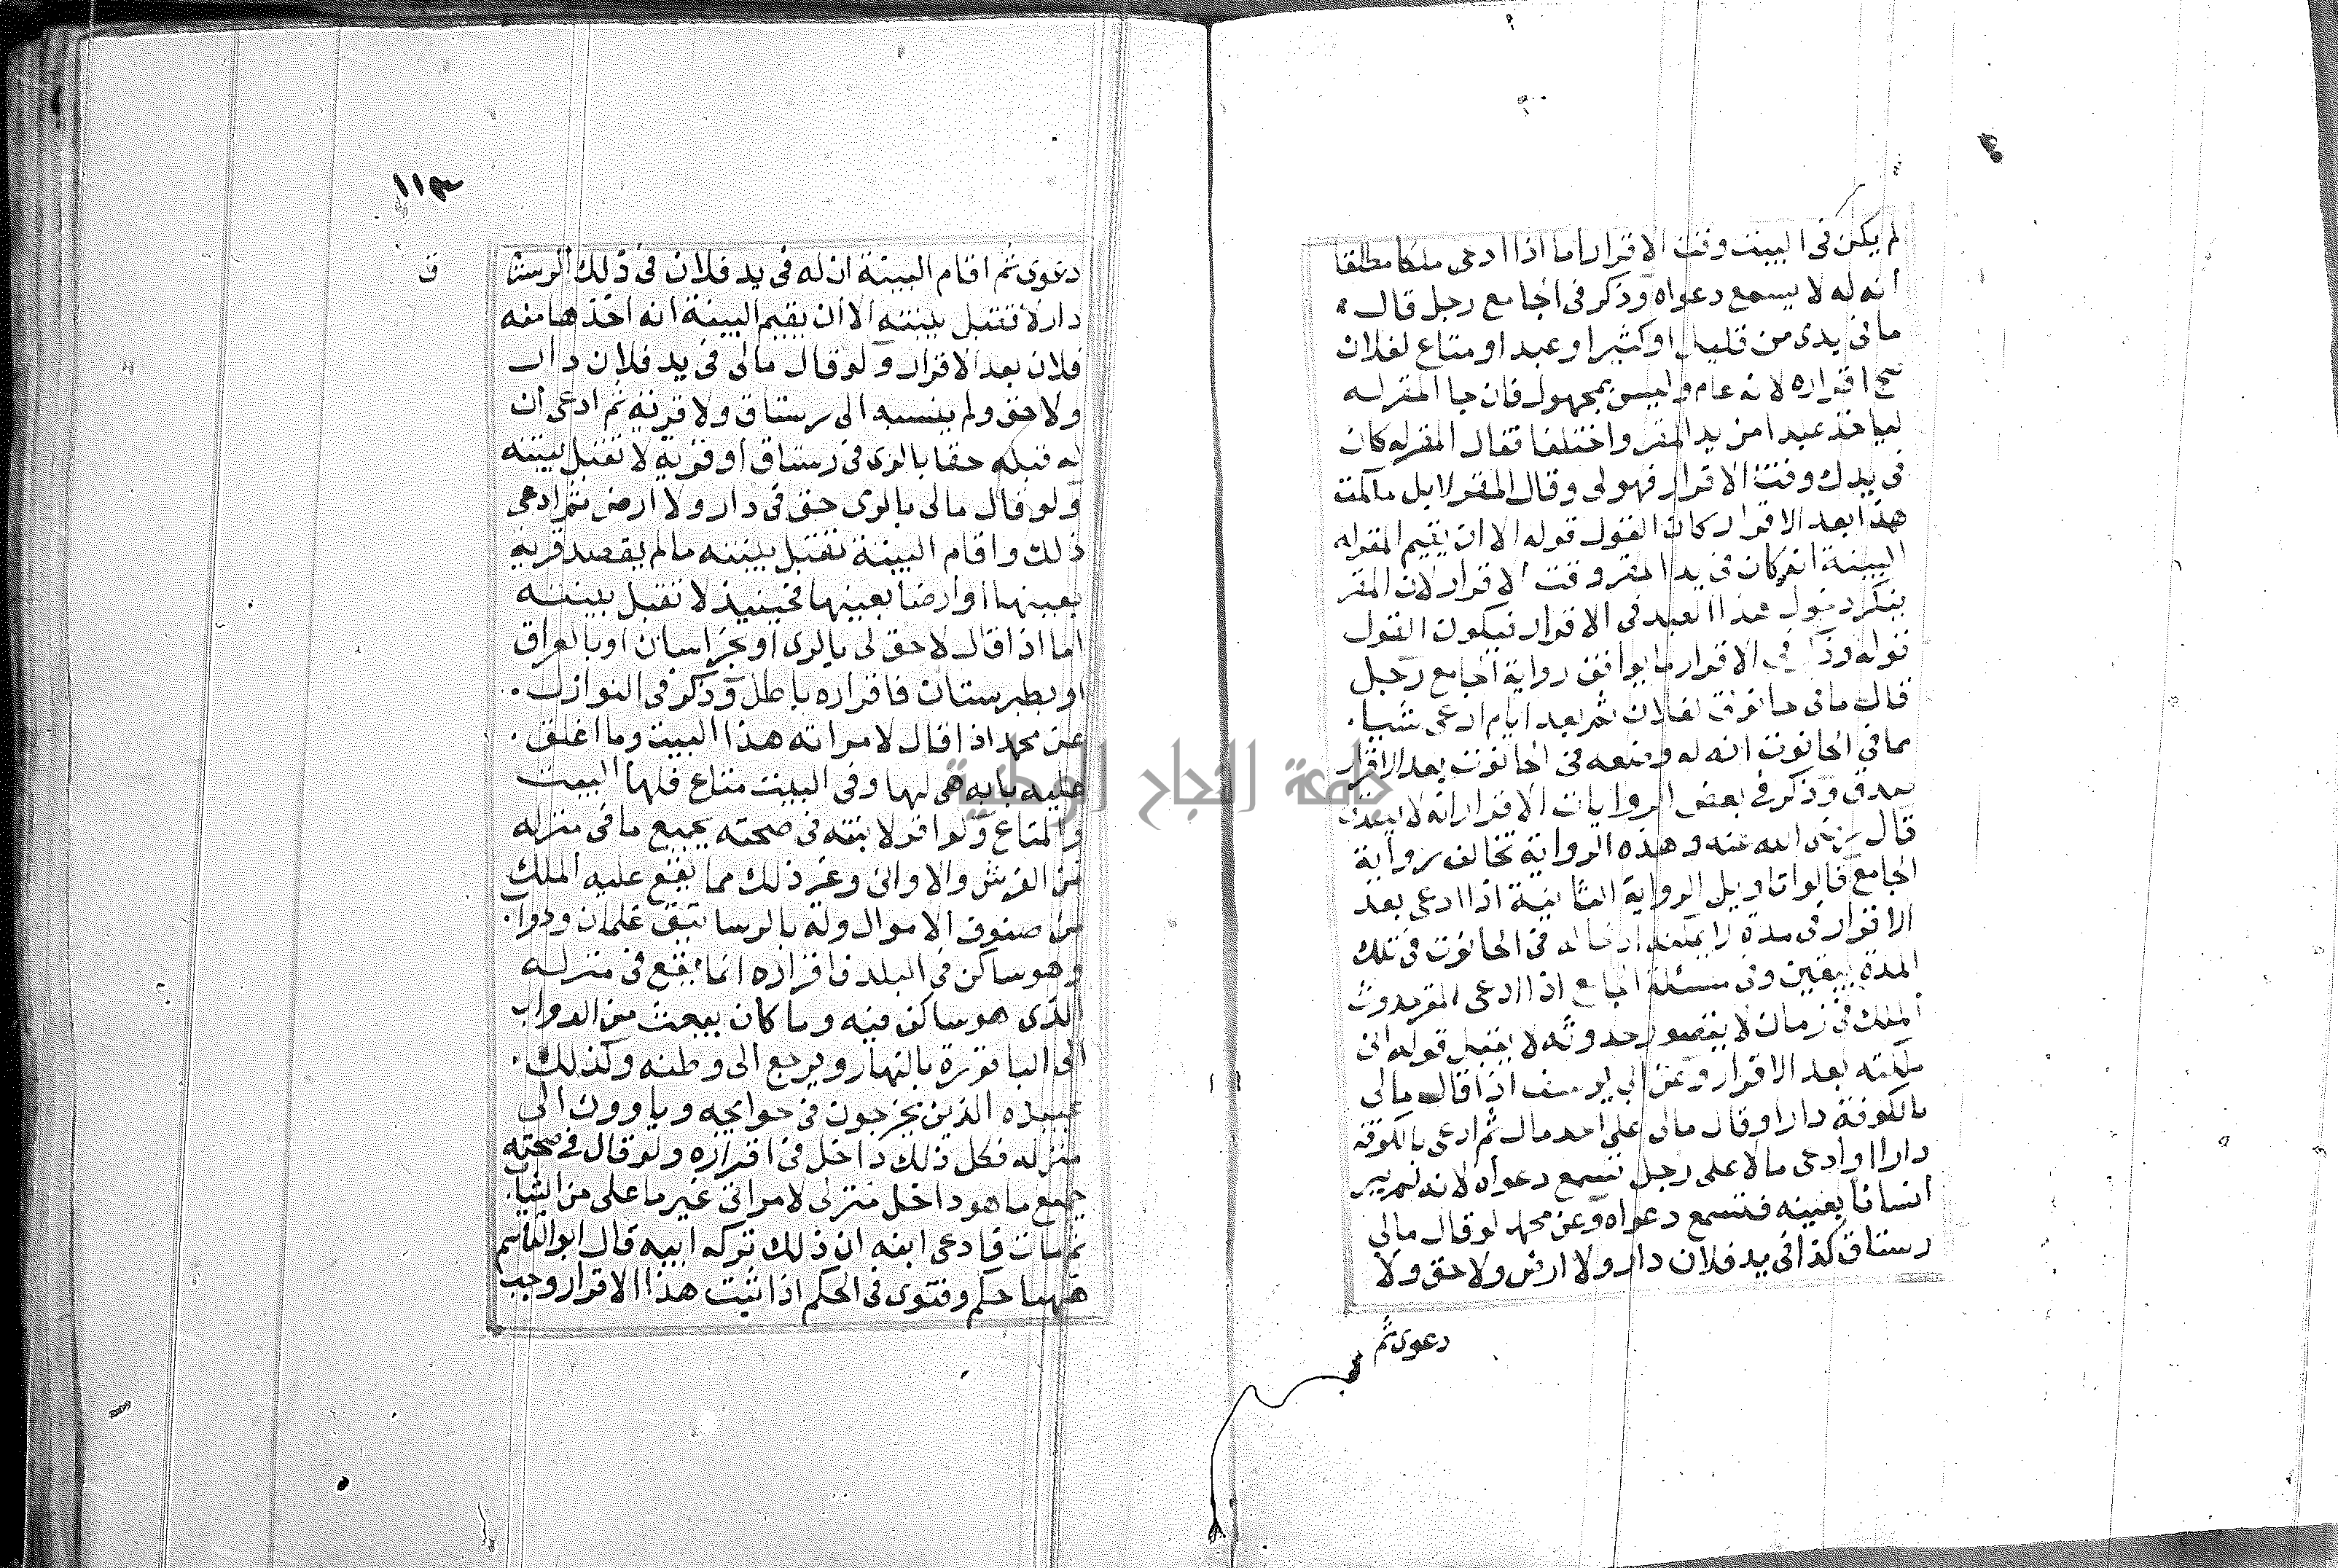 لم يكن في البيت وقت الاقرار اما اذا ادعى ملكا مطلقا
انه له لا يسمع دعواه وذكر في الجامع رجل قال
ما في يدى من قليل او كثير او عبد او متاع لفلان
صح اقراره لانه عام وليس بمجهول فان جا المقر له
لياخذ عبدا من يد المقر واختلفا فقال المقر له كان
في يدك وقت الاقرار فهو لى وقال المقر لا بل ملكت
هذا بعد الاقرار كان القول قوله الا ان يقيم المقر له
البينة انه كان في يد المقر وقت الاقرار لان المقر
ينكر دخول هذا العبد في الاقرار فيكون القول
قوله وذكر في الاقرار ما يوافق رواية الجامع رجل
قال ما في حانوتى لفلان ثم بعد ايام ادعى شيا
مما في الحانوت انه له وضعه في الحانوت بعد الاقرار
صدق وذكر في بعض الروايات الاقرار انه لا يصدق
قال رضى الله عنه وهذه الرواية تخالف رواية
الجامع قالوا تاويل الرواية الثانية اذا ادعى بعد
الاقرار في مدة لا يمكنه ادخاله في الحانوت في تلك
المدة بيقين وفي مسئلة الجامع اذا ادعى المقر حدوث
الملك في زمان لا يتصور حدوثه لا يقبل قوله انى
ملكته بعد الاقرار وعن ابي يوسف اذا قال مالى
بالكوفة دار او قال مالى على احد مال ثم ادعى بالكوفة
دارا او ادعى مالا على رجل تسمع دعواه لانه لم يبر
انسانا بعينه فتسمع دعواه وعن محمد لو قال مالى
رستاق كذا في يد فلان دار ولا ارض ولا حق ولا
دعوى ثم
١١٣
دعوى ثم اقام البينة ان له في يد فلان في ذلك الرستا
ق
دار لا تقبل بينته الا ان يقيم البينة انه اخذها منه
فلان بعد الاقرار ولو قال مالى في يد فلان دار
ولا حق ولم ينسبه الى رستاق ولا قرية ثم ادعى ان
له قبله حقا بالرى في رستاق او قرية لا تقبل بينته
ولو قال مالى بالرى حق في دار ولا ارض ثم ادعى
ذلك واقام البينة تقبل بينته ما لم يقصد قرية
بعينها او ارضا بعينها فحينيذ لا تقبل بينته
اما اذا قال لا حق لى بالرى او بخراسان او بالعراق
او بطبرستان فاقراره باطل وذكر في النوازل
عن محمد اذا قال لامراته هذا البيت وما اغلق
عليه بابه هى لها وفى البيت متاع فلها البيت
والمتاع ولو اقر لابنته في صحته بجميع ما في منزله
من الفرش والاوانى وغير ذلك مما يقع عليه الملك
من صنوف الاموال وله بالرساتيق غلمان ودوا
وهو ساكن في البلد فاقراره انما يقع في منزله
الذى هو ساكن فيه وما كان يبعث من الدواب
الى الباقورة بالنهار ويرجع الى وطنه وكذلك
عبيده الذين يخرجون في حوايجه وياوون الى
منزله فكل ذلك داخل في اقراره ولو قال في صحته
جميع ما هو داخل منزلى لامراتى غير ما على من الثيا
ثم مات فادعى ابنه ان ذلك تركه ابيه قال ابو القاسم
ههنا حكم وفتوى في الحكم اذا ثبت هذا الاقرار وجب
جامعة النجاح الوطنية